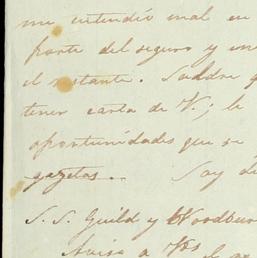 me entendió mal en
parte del seguro y en
el restante. Saldra
tener carta de V.; le
oportunidades que se
gazetas.. Soy de
S. S. Guild y Woodbur
Aviso a Vds